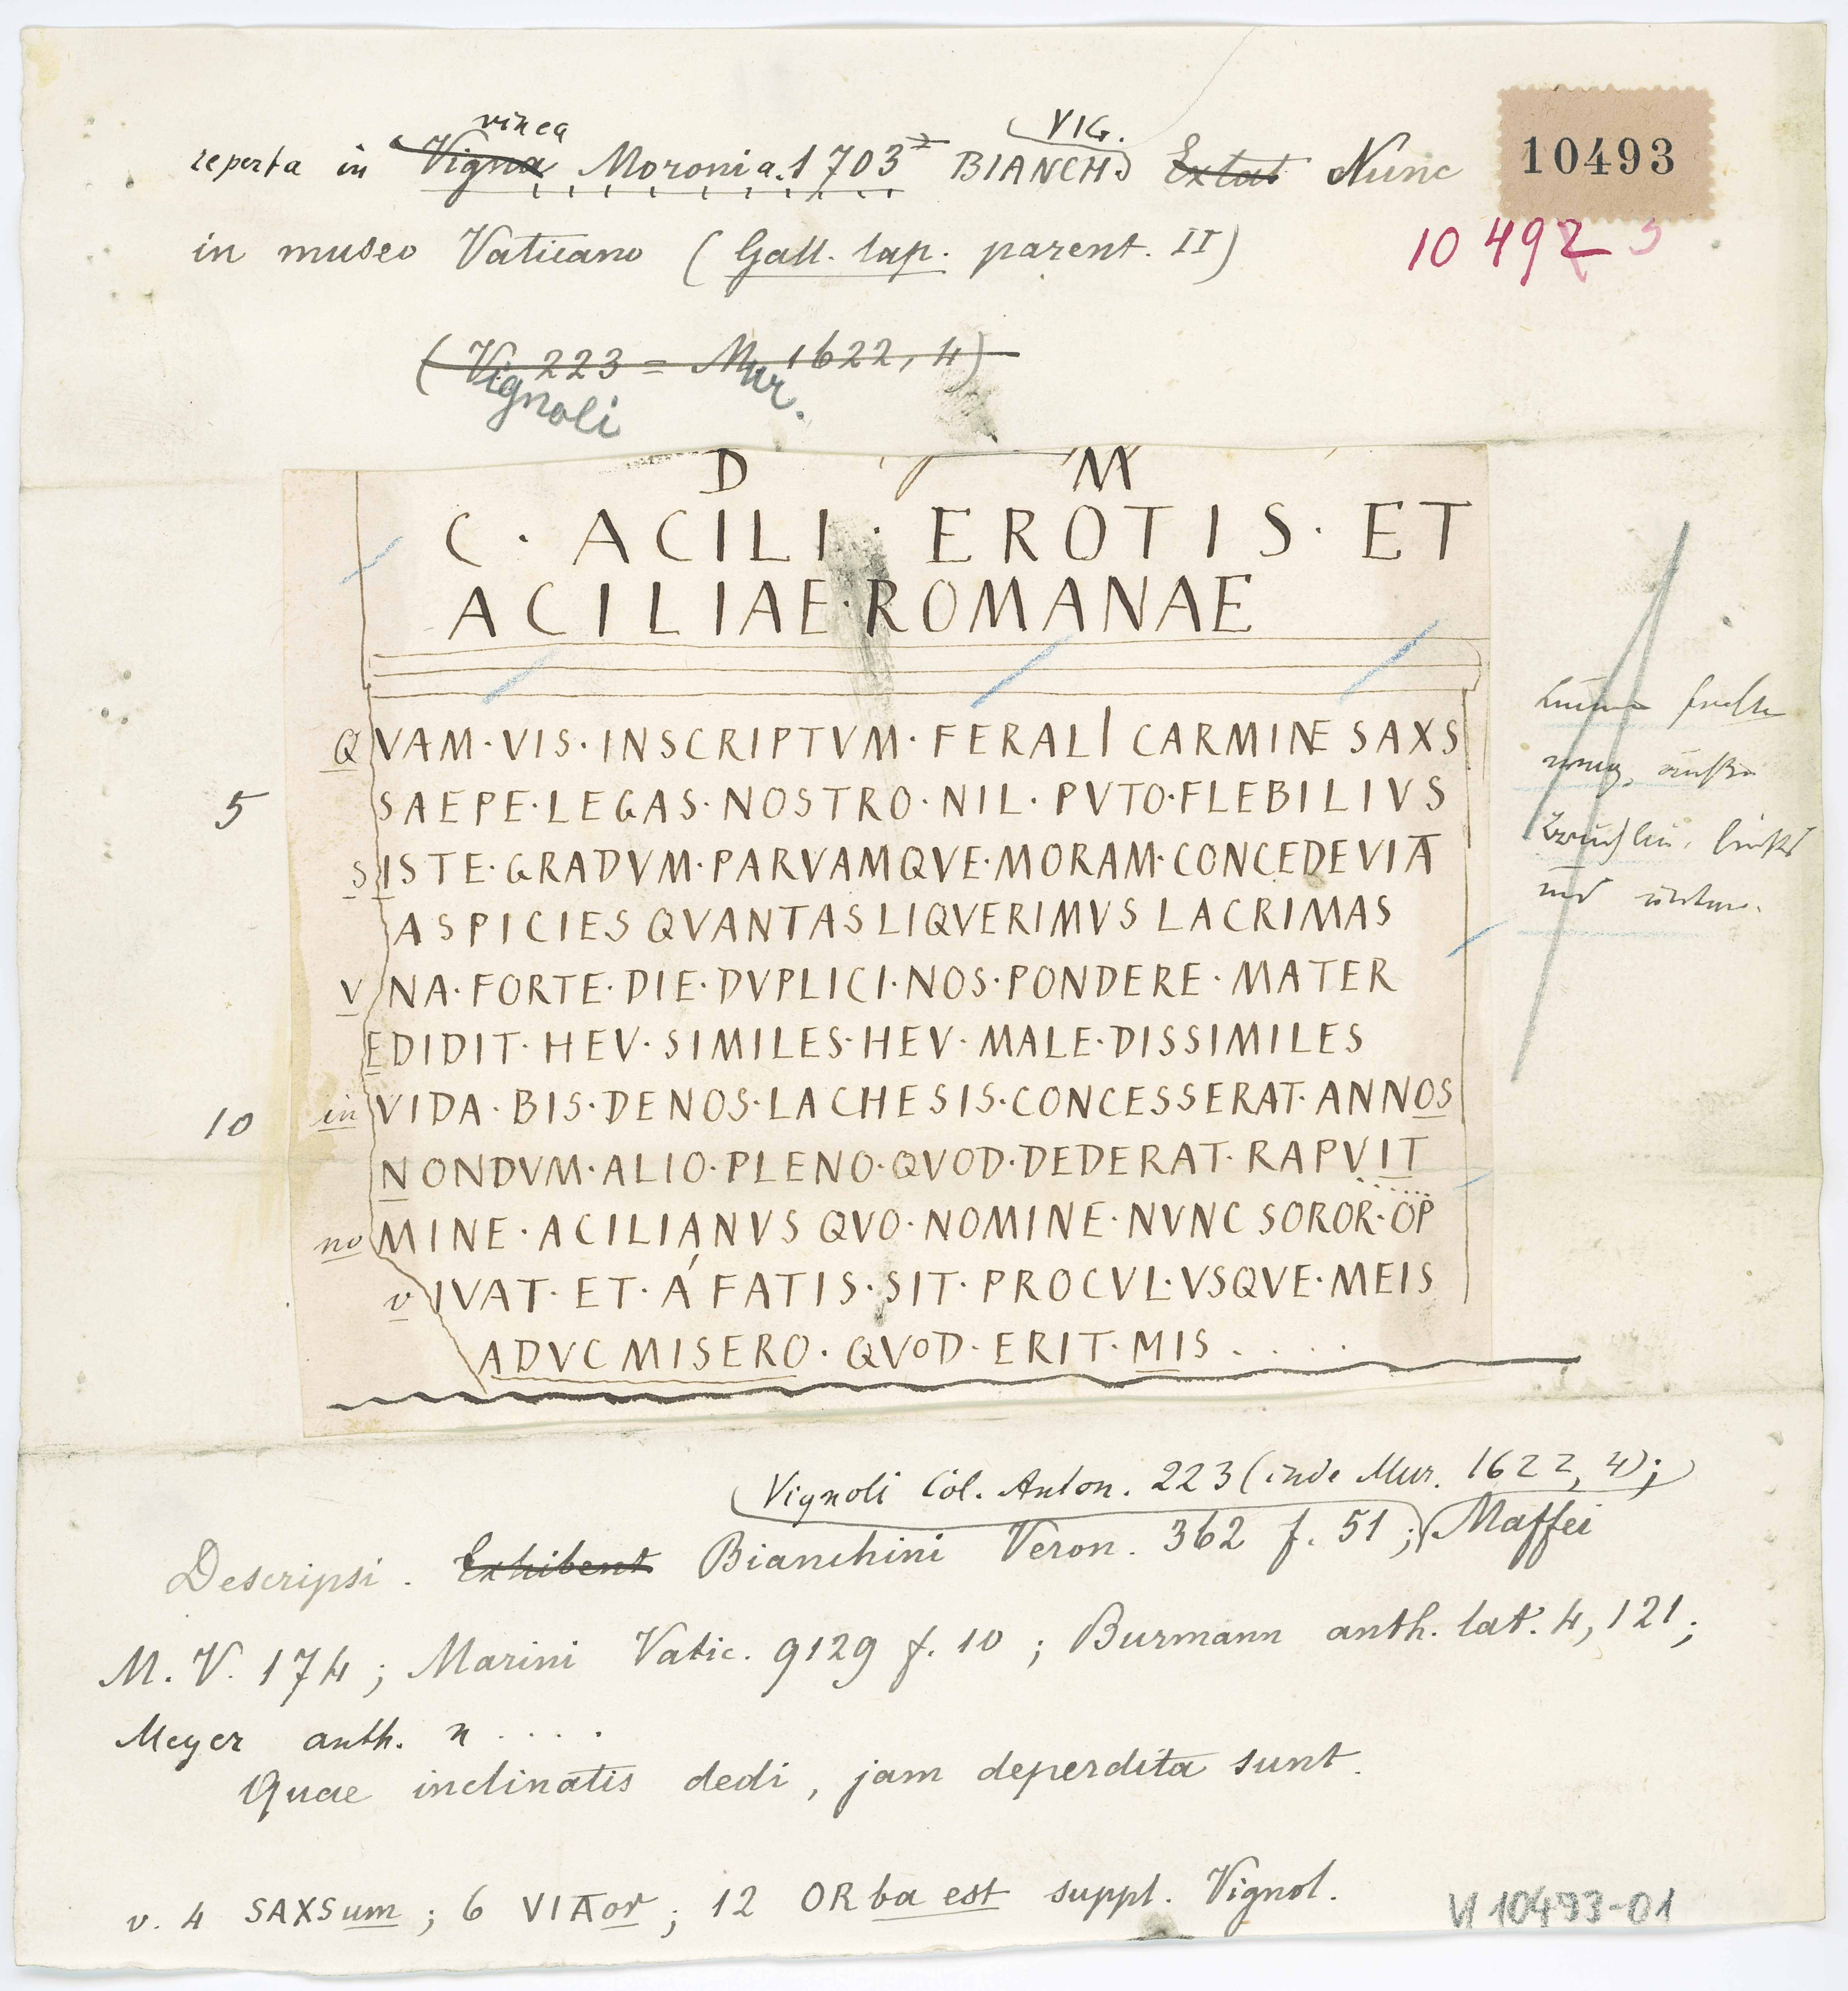 vinea VIG.
reperta in Vigna Moroni a. 1703 BIANCH. Extat Nunc 10493
10 492
in museo Vaticano (Gall. lap. parent. II)
(Vig 223 = Mur 1622, 4)
Vignoli
D M
C · ACILI · EROTIS · ET
ACILIAE · ROMANAE
QVAM · VIS · INSCRIPTVM · FERALI CARMINE SAXS
5 SAEPE · LEGAS · NOSTRO · NIL · PVTO · FLEBILIVS
SISTE · GRADVM · PARVAMQVE · MORAM · CONCEDE VIA
ASPICIES QVANTAS LIQVERIMVS LACRIMAS
VNA · FORTE · DIE · DVPLICI · NOS · PONDERE · MATER
EDIDIT · HEV · SIMILES · HEV · MALE · DISSIMILES
10 inVIDA · BIS · DENOS · LACHESIS · CONCESSERAT · ANNOS
NONDVM · ALIO · PLENO · QVOD · DEDERAT · RAPVIT
noMINE · ACILIANVS QVO · NOMINE · NVNC SOROR · OP
vIVAT · ET · Á FATIS · SIT · PROCVL · VSQVE · MEIS
ADVC MISERO · QVOD · ERIT · MIS . . . .
links
und
Vignoli Col. Anton. 223 (inde Mur. 1622, 4);
Descripsi. Exhibent Bianchini Veron. 362 f. 51; Maffei
M. V. 174; Marini Vatic. 9129 f. 10; Burmann anth. lat. 4, 121;
Meyer anth. n . . . .
Quae inclinatis dedi, jam deperdita sunt.
v. 4 SAXSum; 6 VIAor; 12 ORba est suppl. Vignol.
VI 10493-01